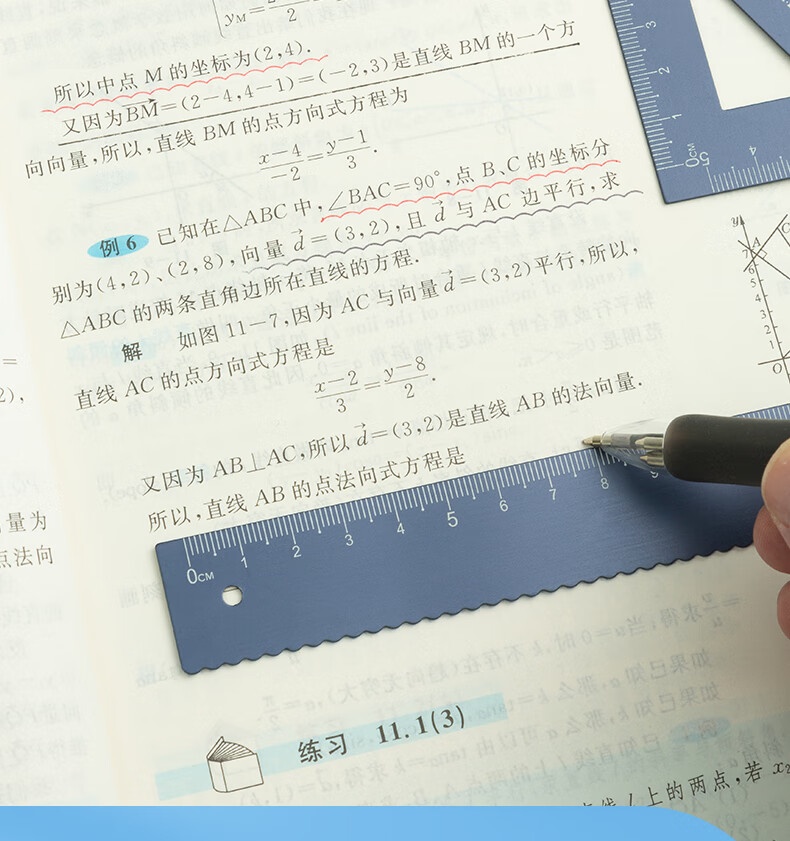 所以中点 M 的坐标为(2,4).
又因为BM=(2-4,4-1)=(-2,3)是直线 BM 的一个方
向向量,所以,直线 BM 的点方向式方程为
x-4/-2=y-1/3.
例 6 已知在△ABC 中,∠BAC=90°,点 B、C 的坐标分
别为(4,2)、(2,8),向量 d=(3,2),且 d 与 AC 边平行,求
△ABC 的两条直角边所在直线的方程.
解 如图 11-7,因为 AC 与向量 d=(3,2)平行,所以,
直线 AC 的点方向式方程是
x-2/3=y-8/2.
又因为 AB⊥AC,所以 d=(3,2)是直线 AB 的法向量.
所以,直线 AB 的点法向式方程是
0CM 1 2 3 4 5 6 7 8
练习 11.1(3)
线 l 上的两点,若
量为
点法向